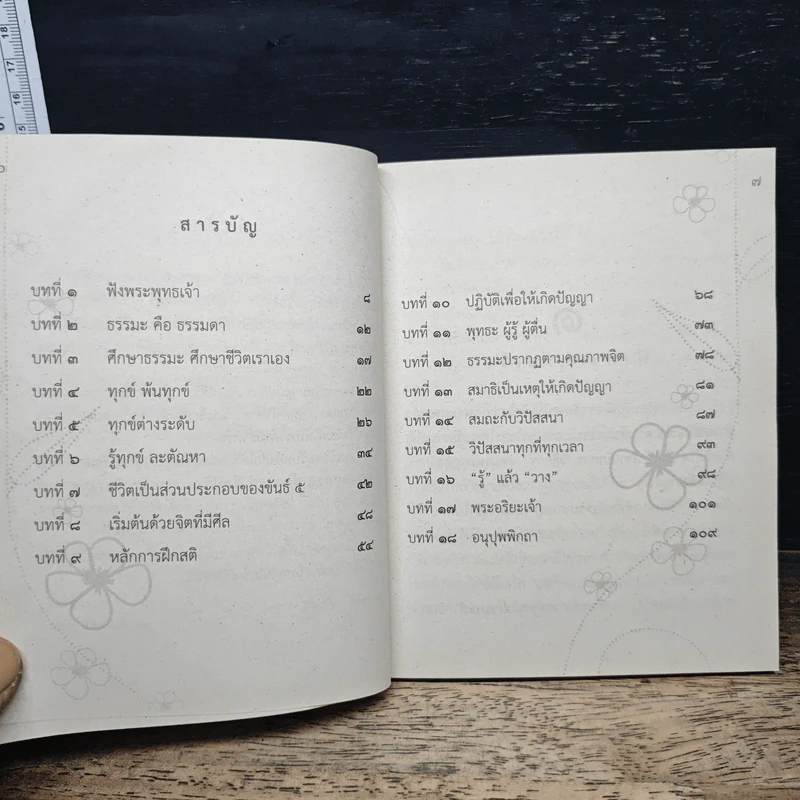 สารบัญ
บทที่ ๑ ฟังพระพุทธเจ้า ๘
บทที่ ๒ ธรรมะ คือ ธรรมดา ๑๒
บทที่ ๓ ศึกษาธรรมะ ศึกษาชีวิตเราเอง ๑๗
บทที่ ๔ ทุกข์ พ้นทุกข์ ๒๒
บทที่ ๕ ทุกข์ต่างระดับ ๒๖
บทที่ ๖ รู้ทุกข์ ละตัณหา ๓๔
บทที่ ๗ ชีวิตเป็นส่วนประกอบของขันธ์ ๕ ๔๒
บทที่ ๘ เริ่มต้นด้วยจิตที่มีศีล ๔๘
บทที่ ๙ หลักการฝึกสติ ๕๔
๗
บทที่ ๑๐ ปฏิบัติเพื่อให้เกิดปัญญา ๖๘
บทที่ ๑๑ พุทธะ ผู้รู้ ผู้ตื่น ๗๓
บทที่ ๑๒ ธรรมะปรากฏตามคุณภาพจิต ๗๘
บทที่ ๑๓ สมาธิเป็นเหตุให้เกิดปัญญา ๘๑
บทที่ ๑๔ สมถะกับวิปัสสนา ๘๗
บทที่ ๑๕ วิปัสสนาทุกที่ทุกเวลา ๙๓
บทที่ ๑๖ “รู้” แล้ว “วาง” ๙๘
บทที่ ๑๗ พระอริยะเจ้า ๑๐๑
บทที่ ๑๘ อนุปุพพิกถา ๑๐๙
18
17
16